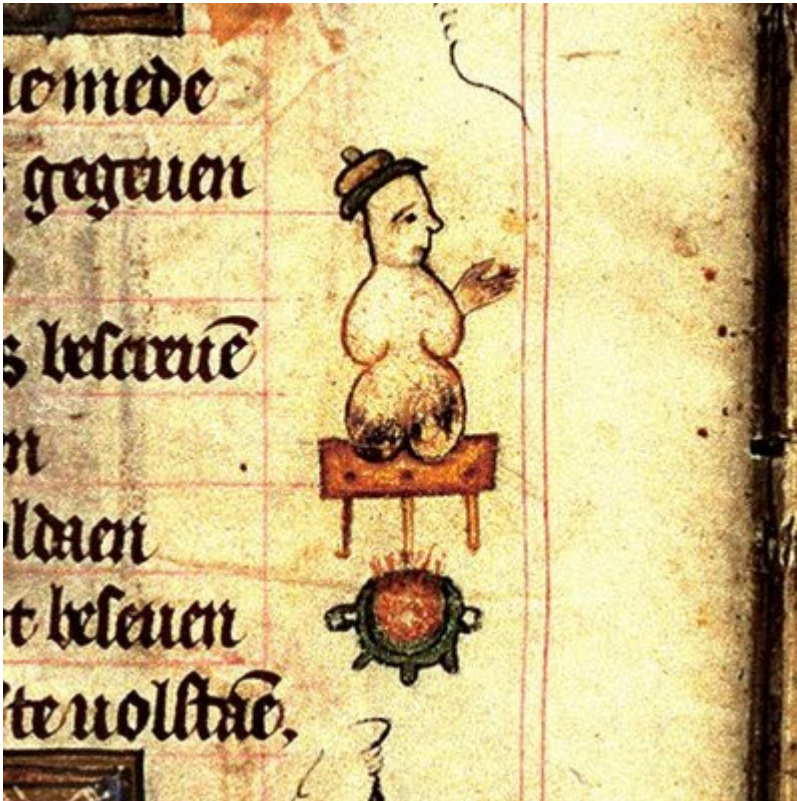 mede
gegeuen
s beſcreuē
n
oldaen
t beſeuen
ſte uolſtaē.